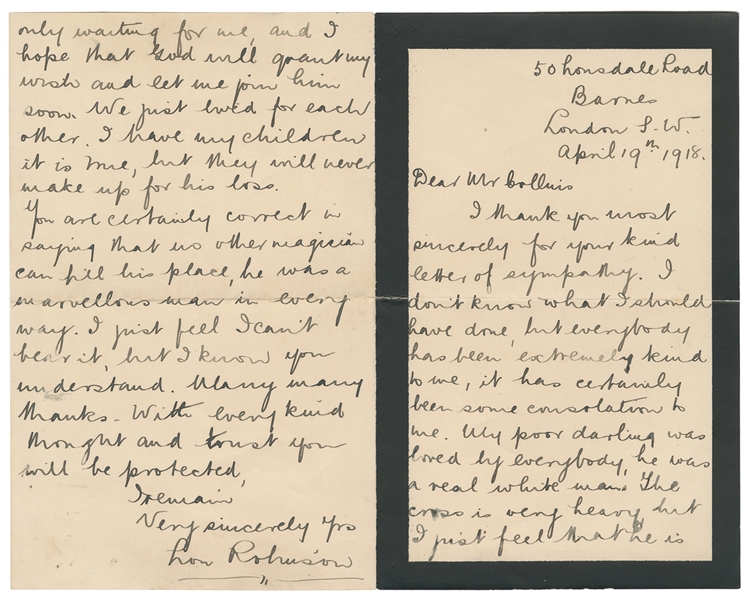 50 Lonsdale Road
Barnes
London S.W.
April 19th 1918.
Dear Mr Collins
I thank you most
sincerely for your kind
letter of sympathy. I
don't know what I should
have done, but everybody
has been extremely kind
to me, it has certainly
been some consolation to
me. My poor darling was
loved by everybody, he was
a real white man. The
cross is very heavy but
I just feel that he is
only waiting for me, and I
hope that God will grant my
wish and let me join him
soon. We just lived for each
other. I have my children
it is true, but they will never
make up for his loss.
You are certainly correct in
saying that no other magician
can fill his place, he was a
marvellous man in every
way. I just feel I can't
bear it, but I know you
understand. Many many
thanks - With every kind
thought and trust you
will be protected,
I remain
Very sincerely yrs
Lou Robinson